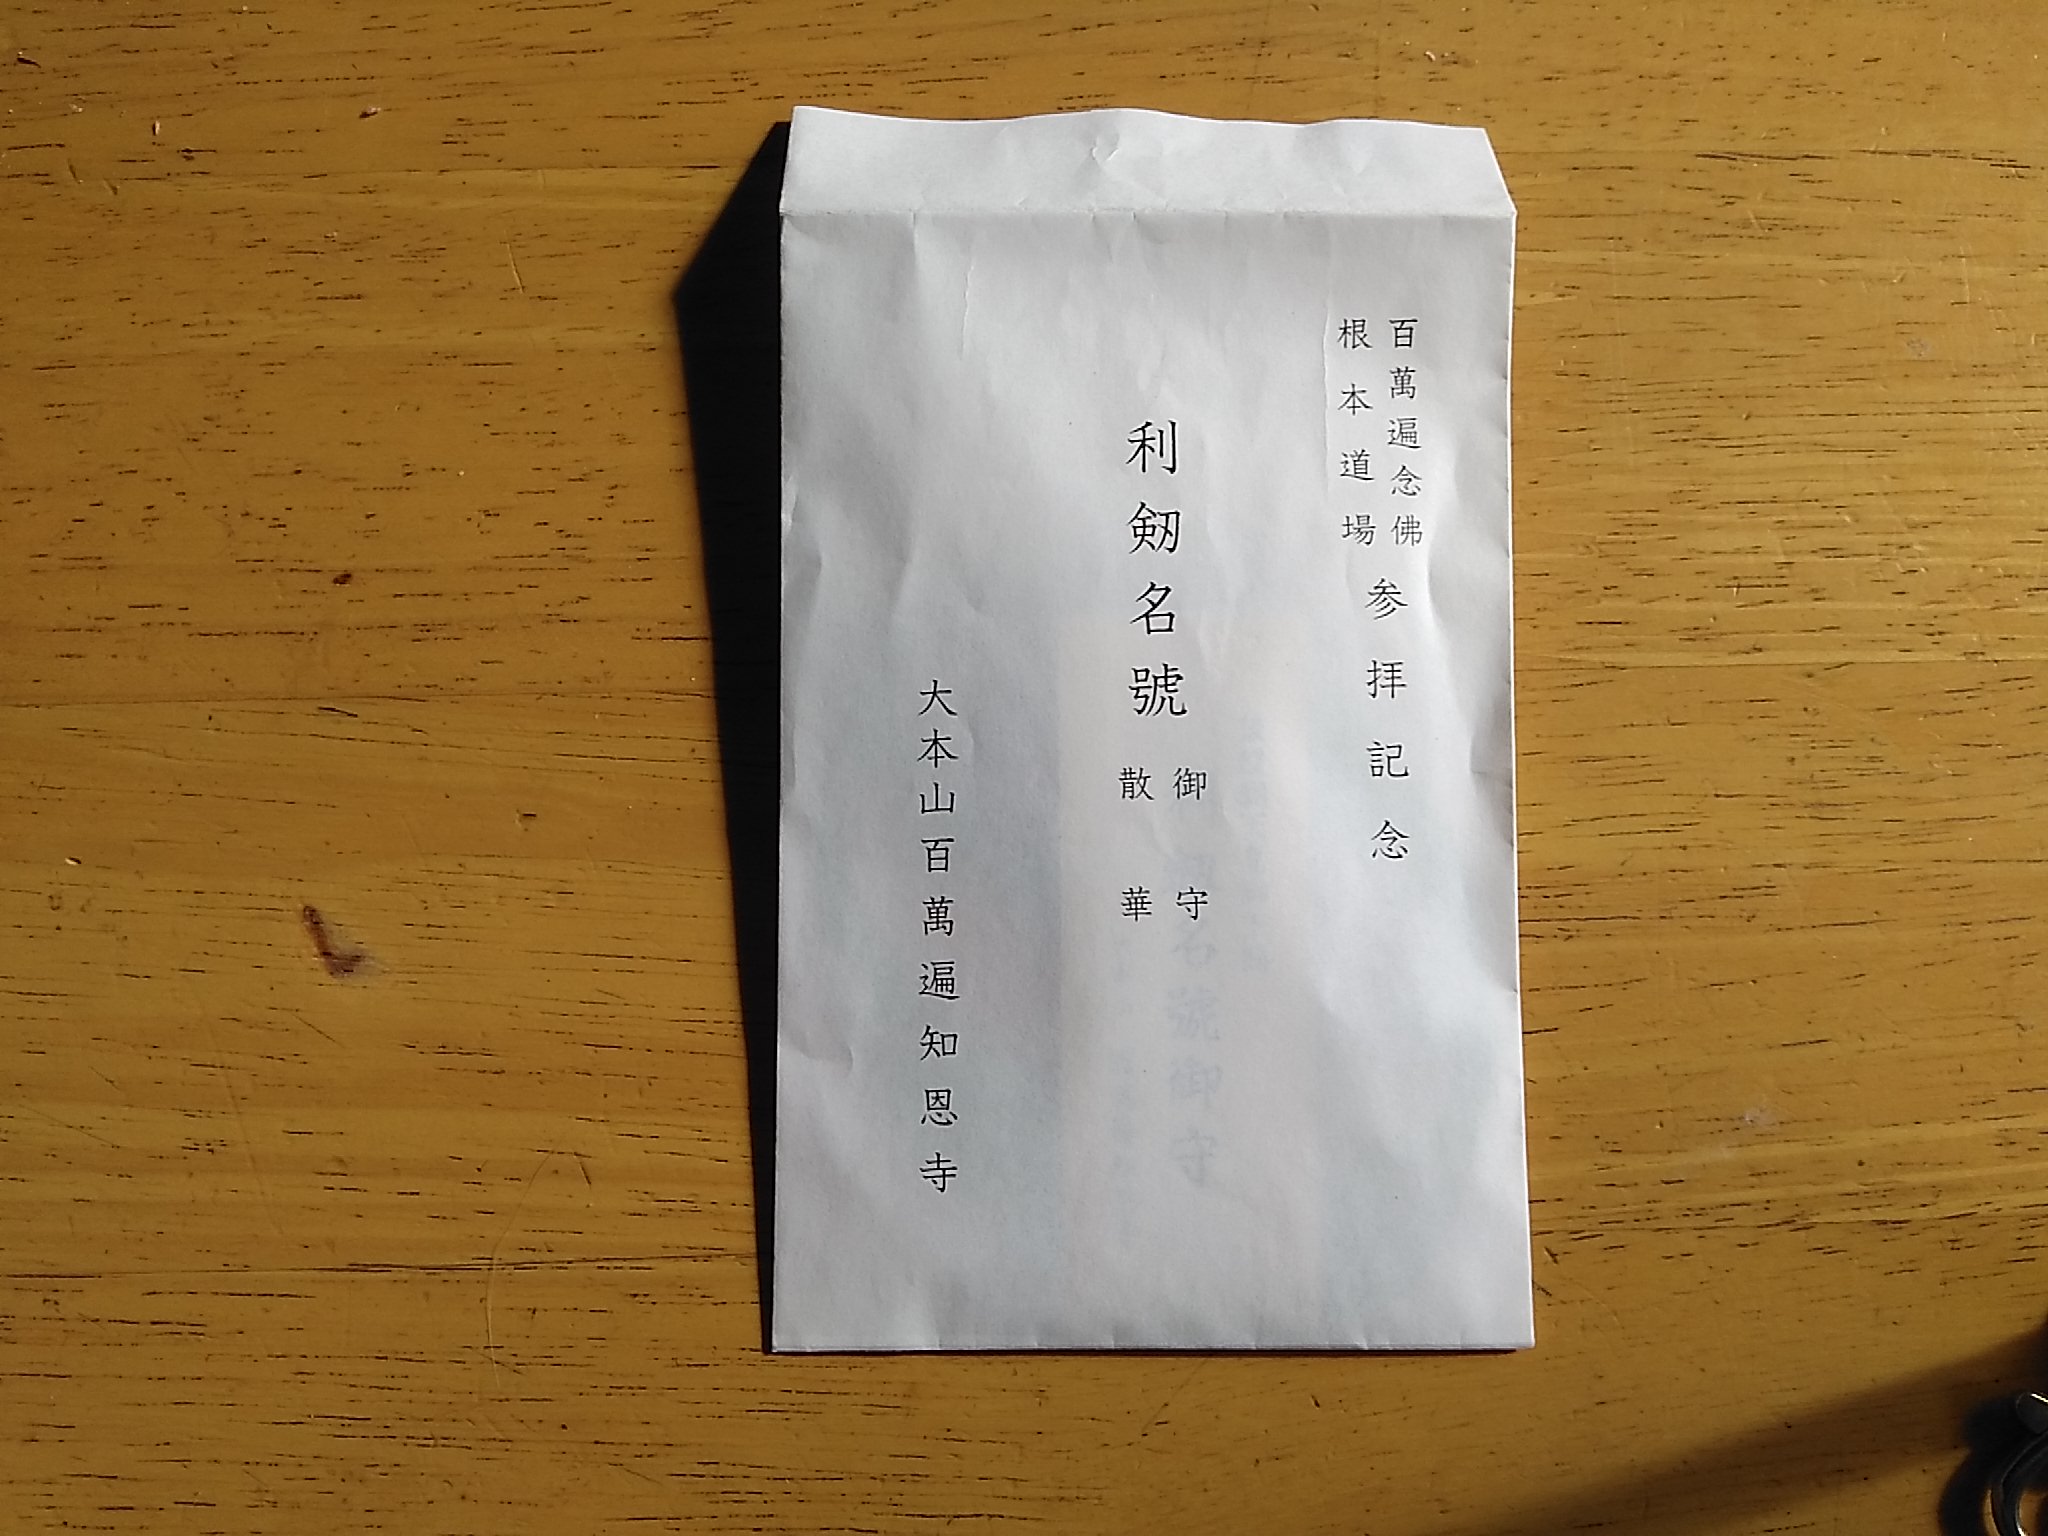 百萬遍念佛
根本道場
参拝記念
利剱名號
御守
散華
大本山百萬遍知恩寺
名號御守